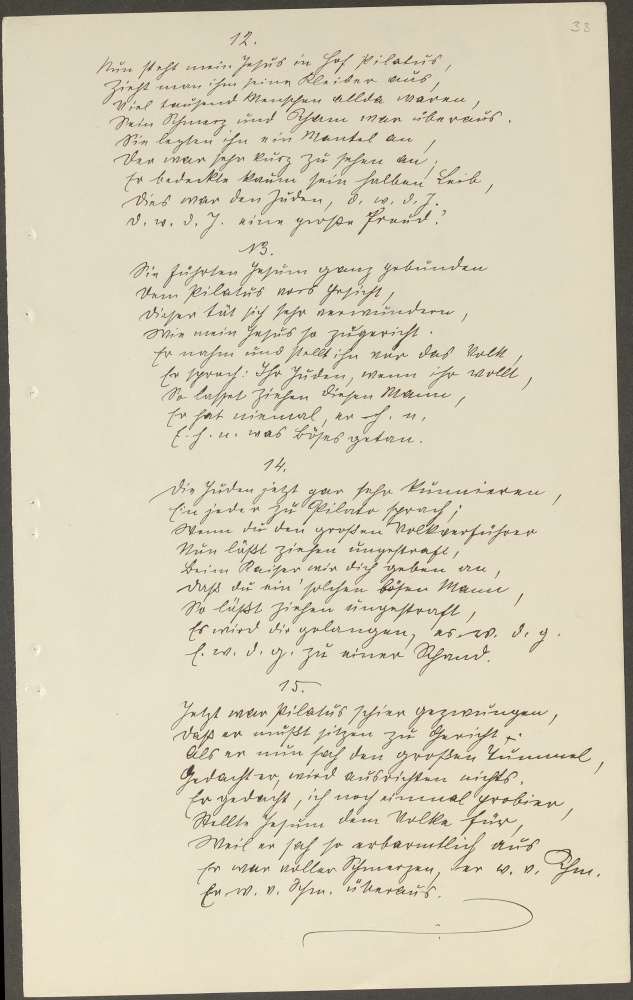 33
12.
Nun steht mein Jesus in Hof Pilatus,
Zieht man ihm seine Kleider aus,
Viel tausend Menschen allda waren,
Sein Schmerz und Scham war überaus.
Sie legten ihn ein Mantel an,
Der war sehr kurz zu sehen an;
Er bedeckte kaum sein halben Leib,
Dies war den Juden, d. w. d. J.
d. w. d. J. eine große Freud!
13.
Sie führten Jesum ganz gebunden
Dem Pilatus vors Gesicht,
Dieser tät sich sehr verwundern,
Wie mein Jesus so zugericht.
Er nahm und stellt ihn vor das Volk,
Er sprach: Ihr Juden, wenn ihr wollt,
So lasset ziehen diesen Mann,
Er hat niemal, er h. n.
E. h. n. was Böses getan.
14.
Die Juden jetzt gar sehr
Ein jeder zu Pilato sprach:
Wenn du den großen Volkverführer
Nun läßt ziehen ungestraft,
Beim Kaiser wir dich geben an,
Daß du ein' solchen bösen Mann,
So läßt ziehen ungestraft,
Es wird dir gelangen, es. w. d. g.
E. w. d. g. zu einer Schand.
15.
Jetzt war Pilatus schier gezwungen,
Daß er mußt sitzen zu Gericht
Als er nun sah den großen Tummel,
Gedacht er, wird ausrichten nichts.
Er gedacht, ich noch einmal probier,
Stellte Jesum dem Volke für,
Weil er sah so erbarmtlich aus
Er war voller Schmerzen, er w. v. Schm.
Er w. v. Schm. überaus.